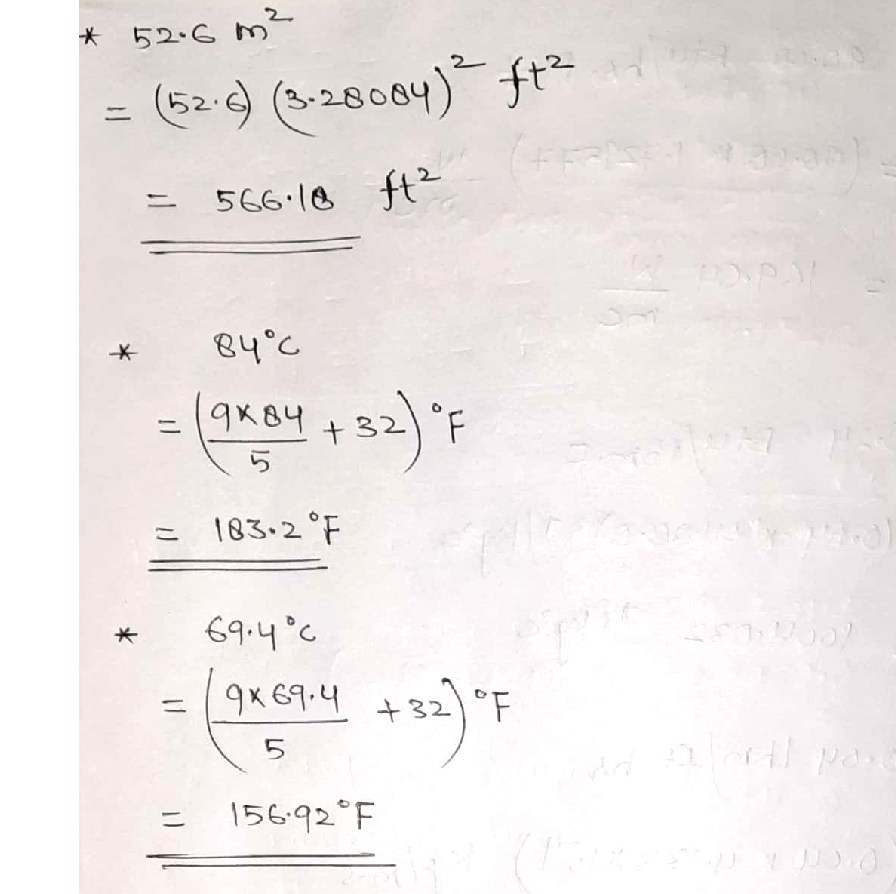 * 52.6 m²
= (52.6) (3.28084)² ft²
= 566.18 ft²
* 84°C
= (9×84/5 + 32)°F
= 183.2°F
* 69.4°C
= (9×69.4/5 + 32)°F
= 156.92°F